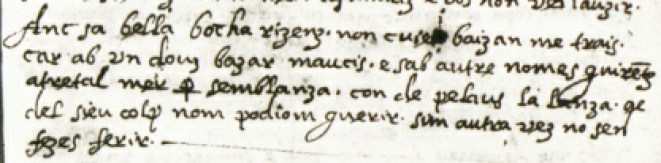 Anc sa bella bocha rizenz. non cuiei baizan me trais.
car ab un douz bazar maucis. e sab autre nomes guirenz
atretal mer p semblanza. con de peleus la lanza. qe
del sieu colp nom podiom guerir. sun autra vez no sen
fezes ferir.